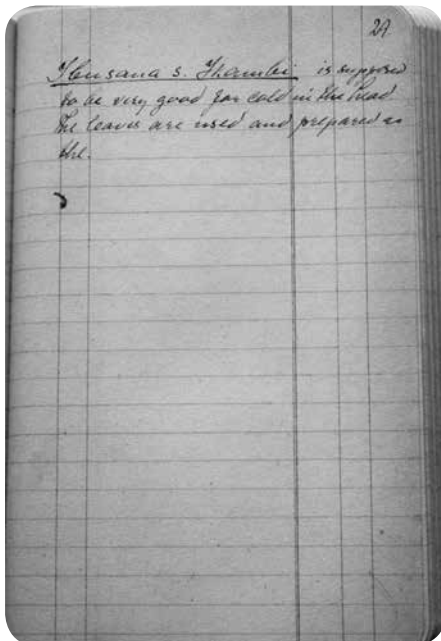 29
s. Thambi is supposed
to be very good for cold in the head
The leaves are used and prepared as
the.